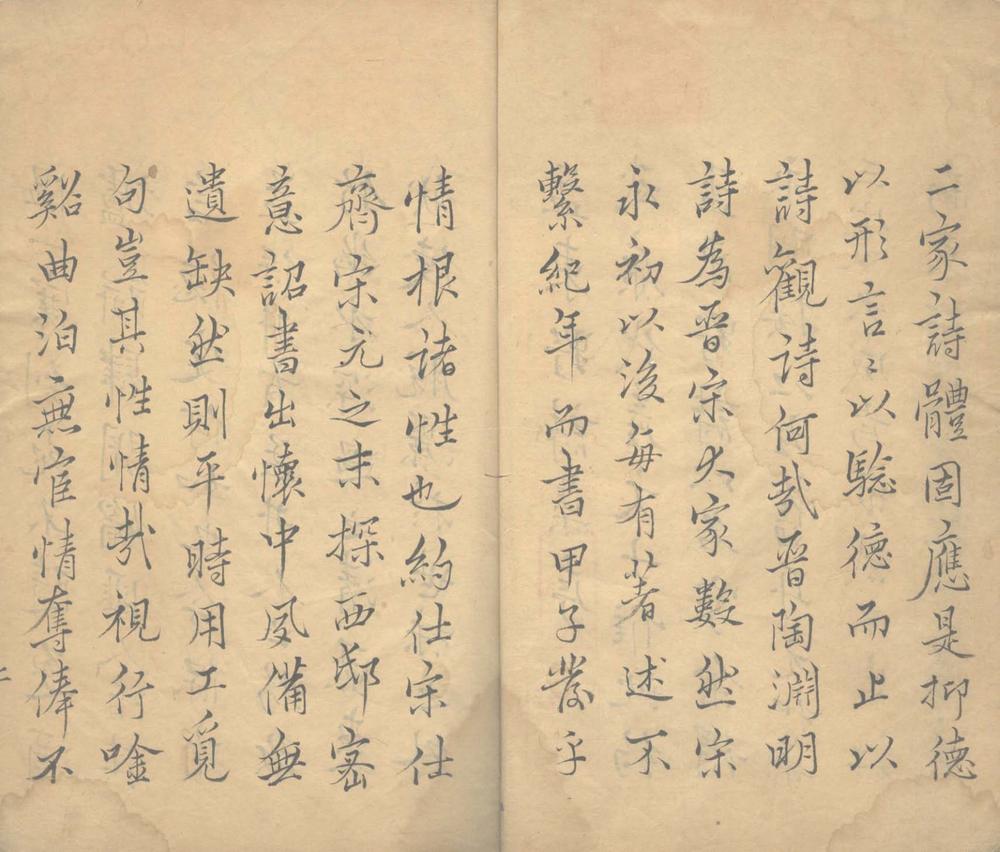 二家詩體固應是抑德
以形言言以驗德而止以
詩觀詩何哉晉陶淵明
詩為晉宋大家數然宋
永初以後每有著述不
繫紀年而書甲子發乎
情根諸性也約仕宋仕
齊宋元之末探西邸密
意詔書出懷中夙備無
遺缺然則平時用工覓
句豈其性情哉視行唫
谿曲泊無宦情奪俸不